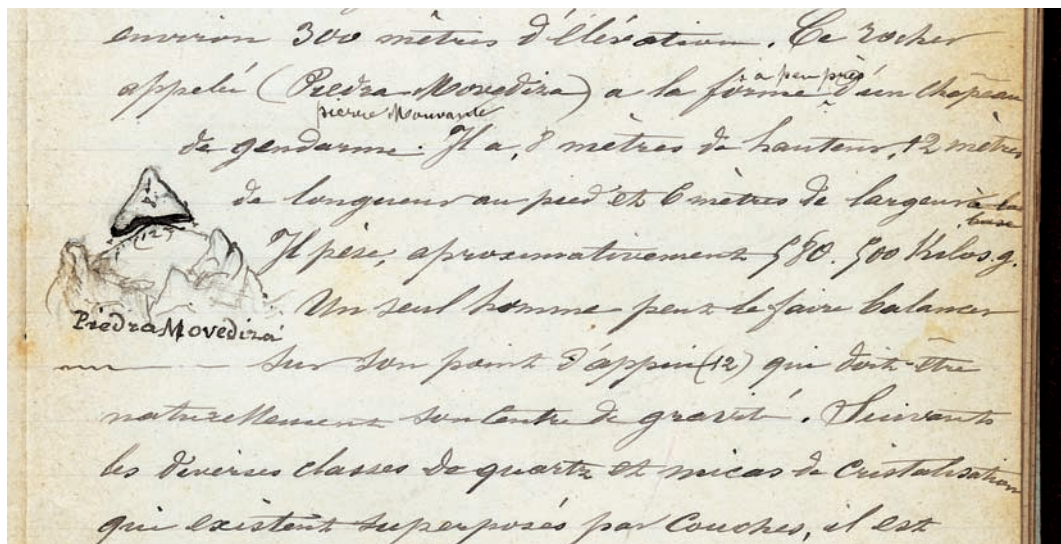 environ 300 mètres d'élévation. Ce rocher
appelé (Piedra Movediza) a la forme à peu près d'un chapeau
pierre Mouvante
de gendarme. Il a, 8 mètres de hauteur, 12 mètres
de longueur au pied et 6 mètres de largeur à la base
Il pèse, aproximativement 580.500 Kilos.g.
Un seul homme peut le faire balancer
(12)
Piedra Movediza
sur son point d'appui (12) qui doit être
naturellement son Centre de gravité. Suivants
les diverses classes de quartz et micas de Cristalisation
qui existent superposés par Couches, il est